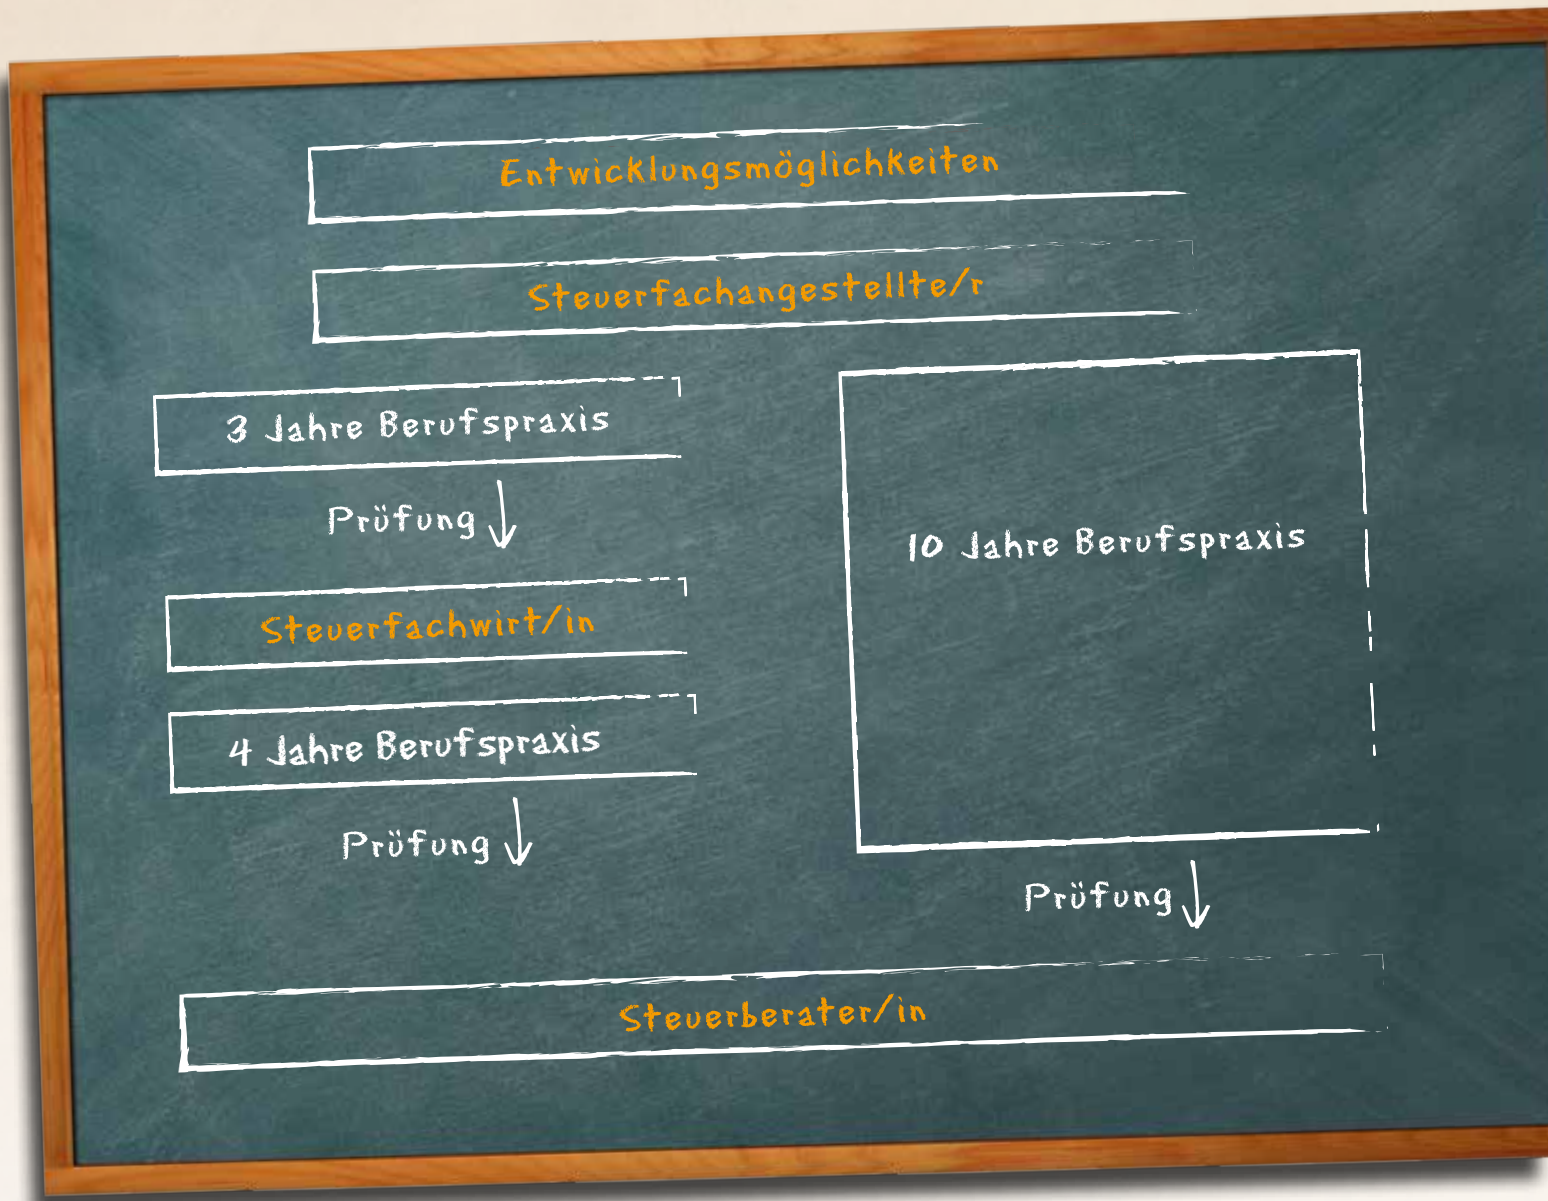 Entwicklungsmöglichkeiten
Steuerfachangestellte/r
3 Jahre Berufspraxis
Prüfung
Steuerfachwirt/in
4 Jahre Berufspraxis
Prüfung
10 Jahre Berufspraxis
Prüfung
Steuerberater/in